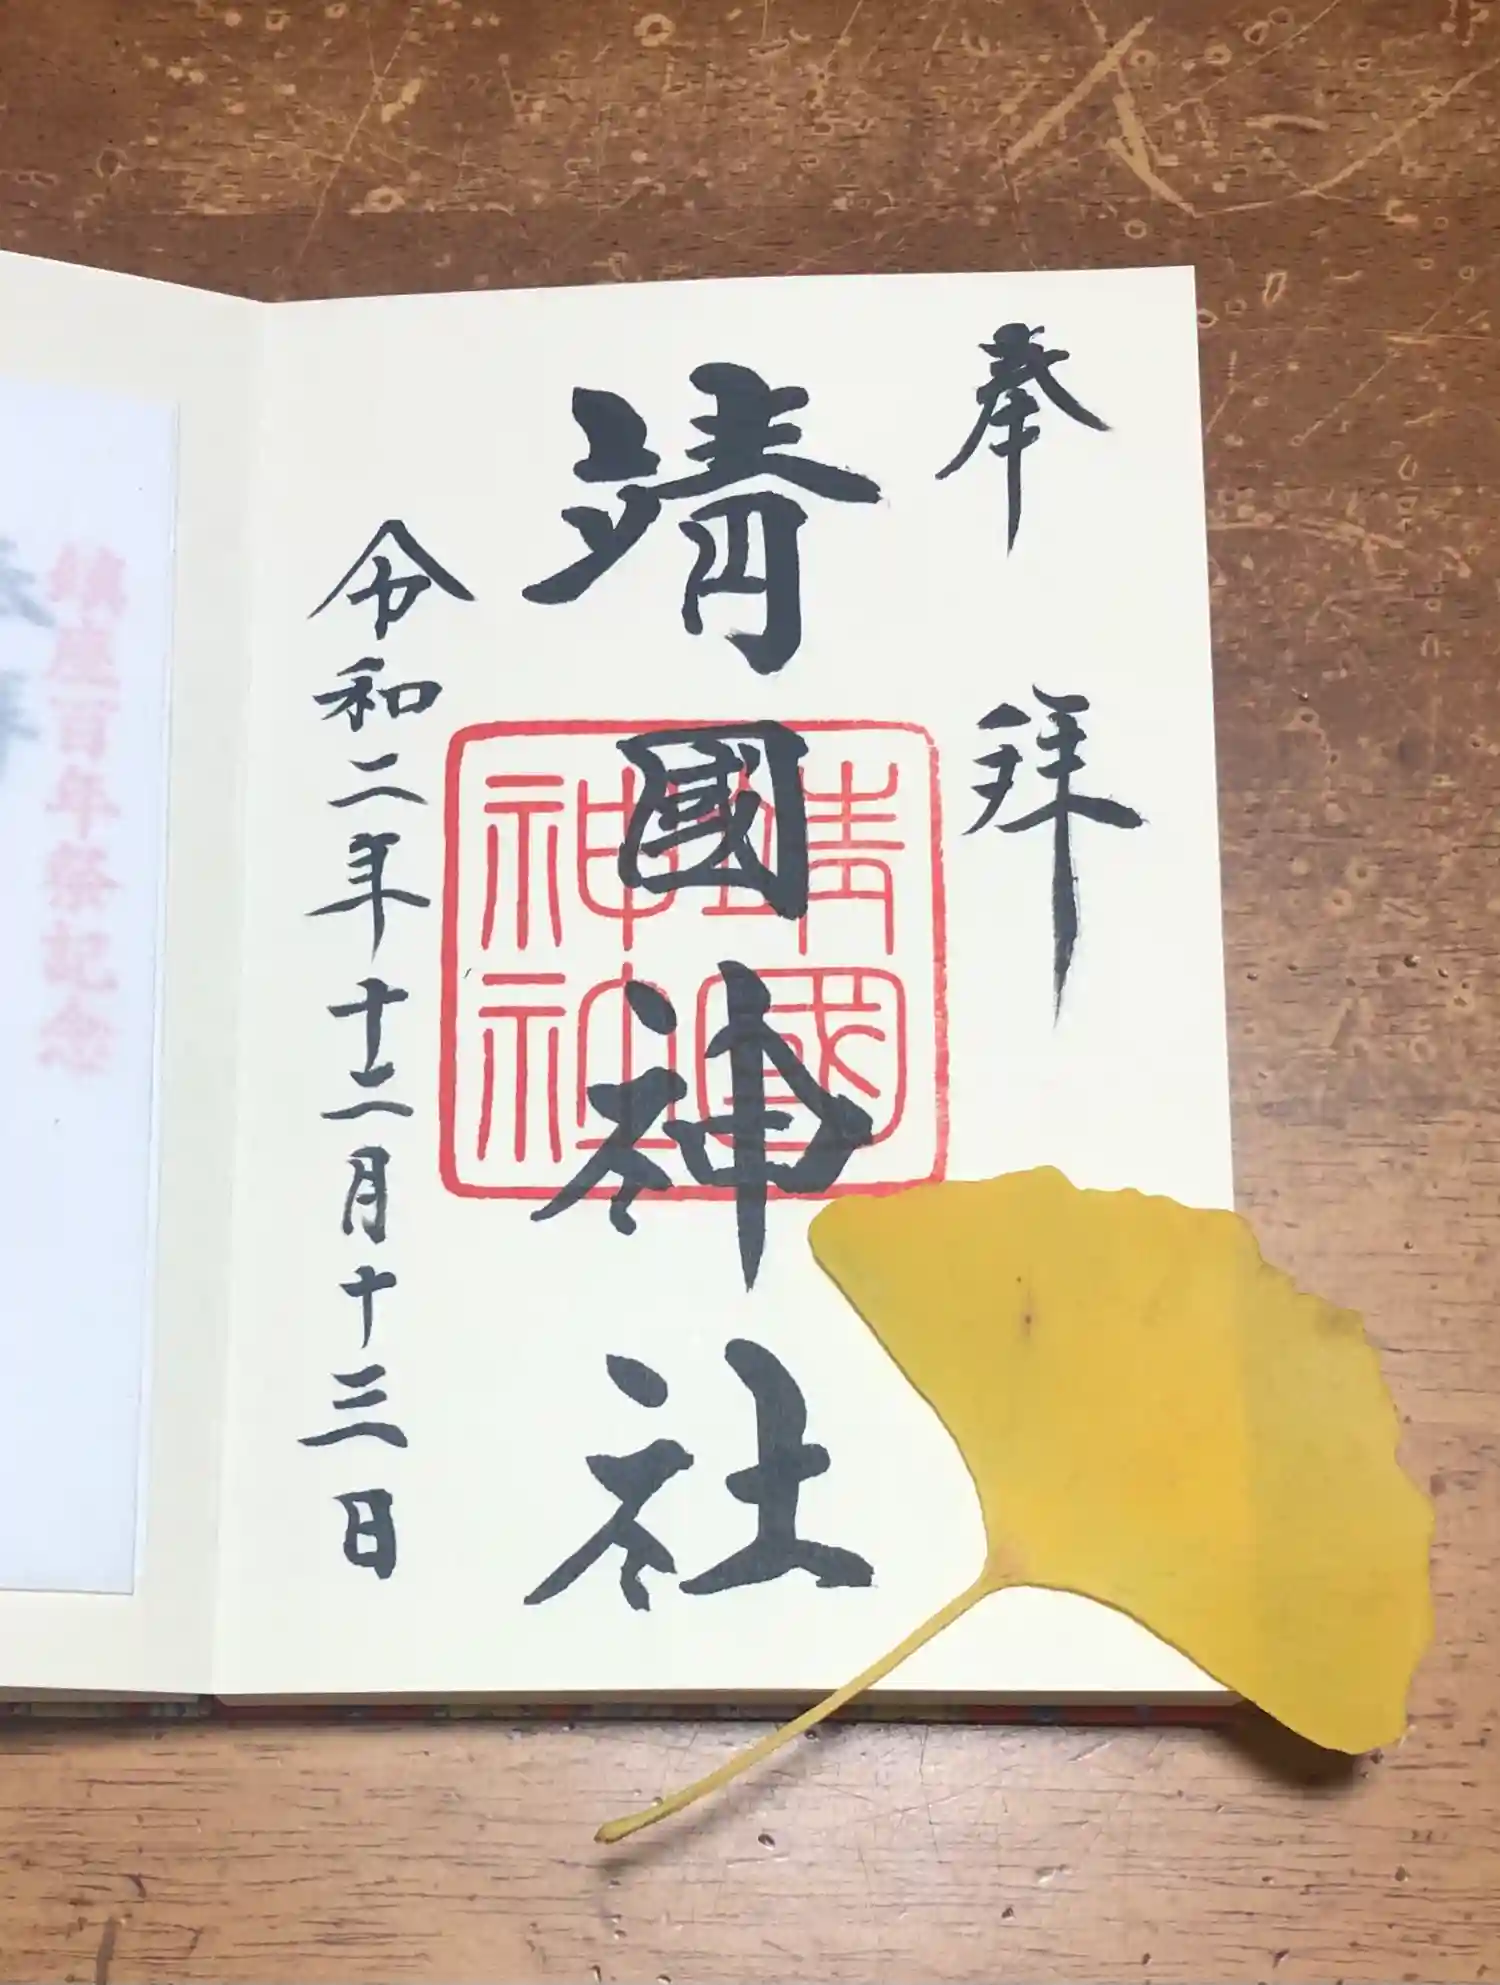 奉拝
靖國神社
靖國
神社
令和二年十二月十三日
鎮座百年祭記念